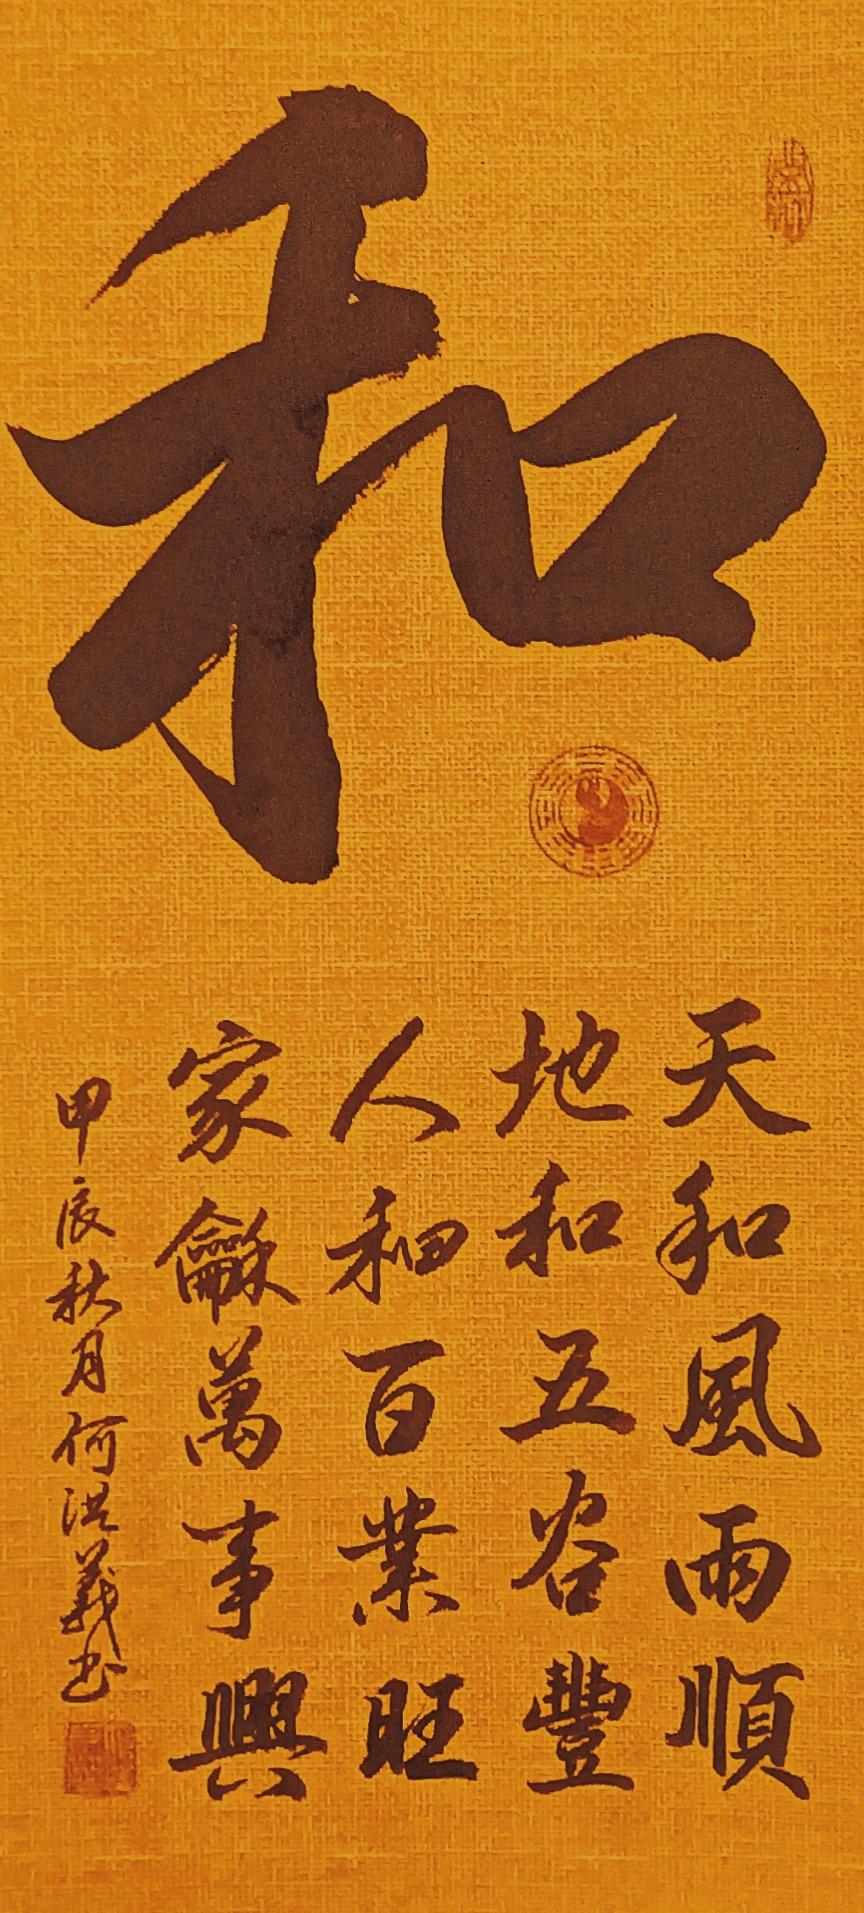 和
天和風雨順
地和五谷豐
人和百業旺
家龢萬事興
甲辰秋月何洪義书